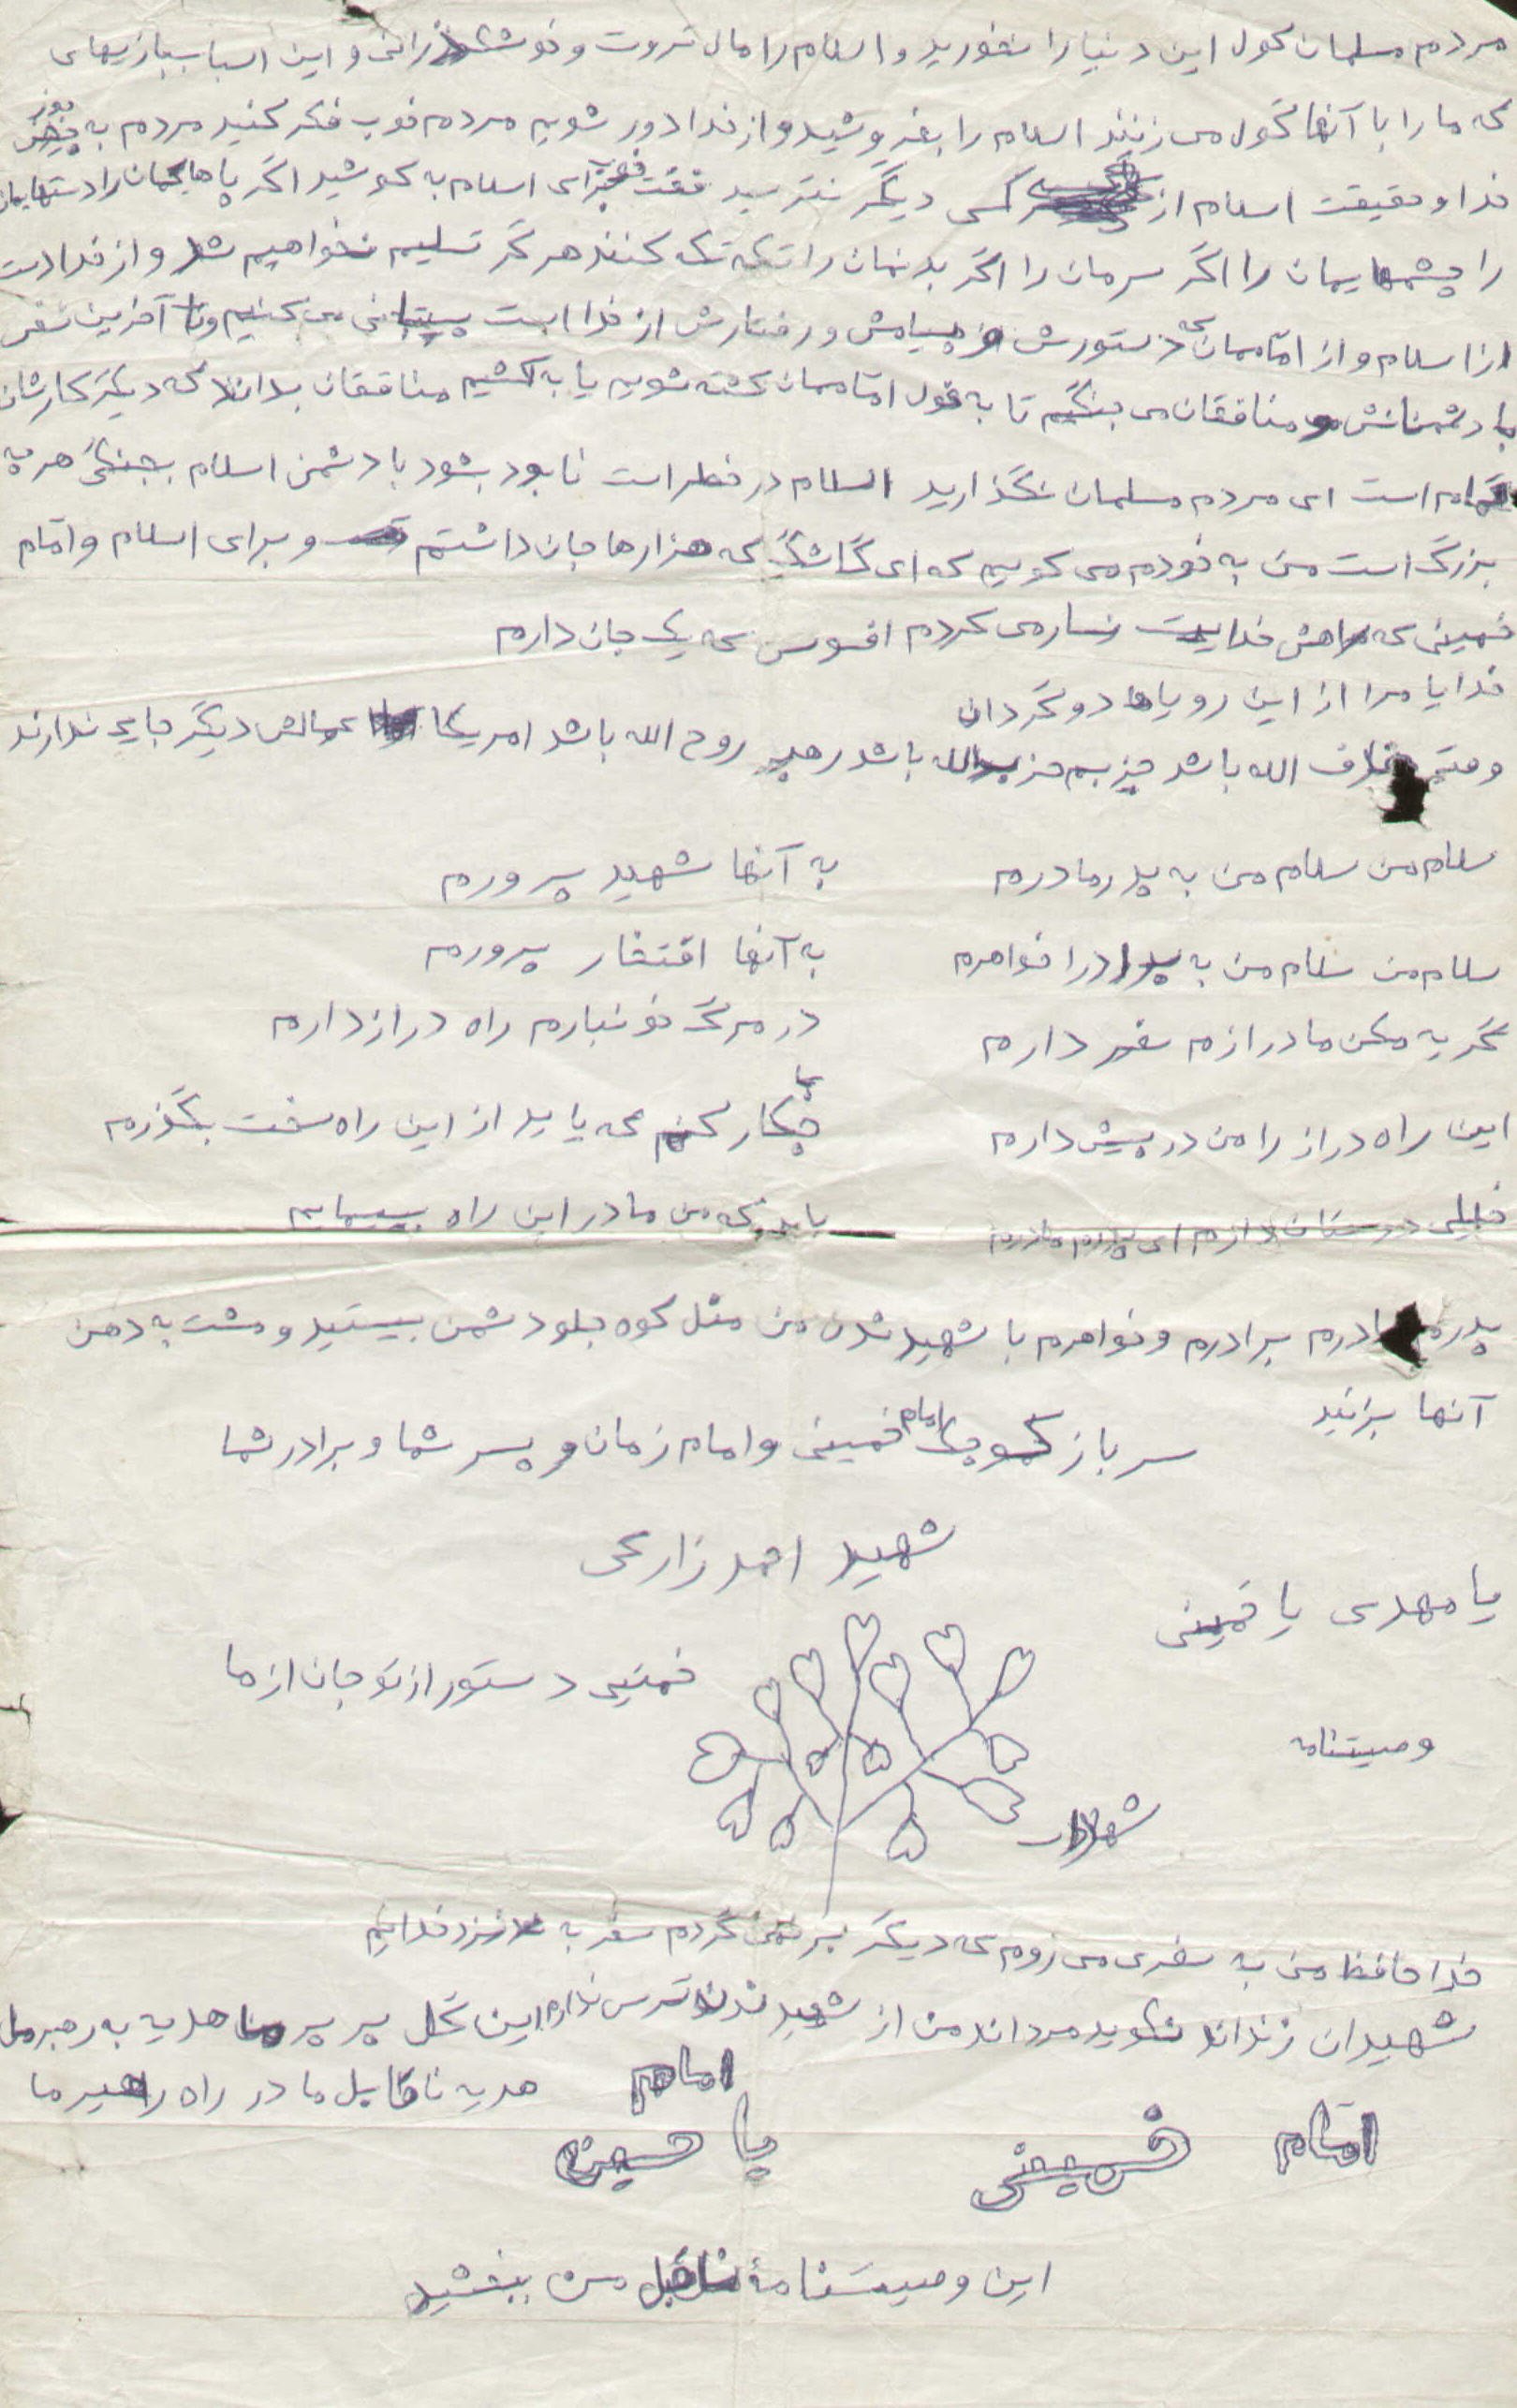 مردم مسلمان گول این دنیا را نخورید و اسلام را مال ثروت و خوشگذرانی و این اسباببازیهای
که ما را با آنها گول می زنند اسلام را بفروشید و از خدا دور شویم مردم خوب فکر کنید مردم به جز
خدا و حقیقت اسلام از کسی دیگر نترسید فقت برای اسلام به کوشید اگر پاهایمان را دستهایمان
را چشمهایمان را اگر سرمان را اگر بدنمان را تکه تکه کنند هرگز تسلیم نخواهیم شد و از خدا دست
از اسلام و از امتاممان که دستورش و پیامش و رفتارش از خدا است پشتبانی می کنیم و تا آخرین نفس
با دشمنانش و منافقان می جنگیم تا به قول امتاممان کشته شویم یا به کشیم منافقان بدانند که دیگر کارشان
تمام است ای مردم مسلمان نگذارید اسلام در خطر است نابود بشود با دشمن اسلام بجنگید هر چه
بزرگ است من به خودم می گویم که ای کاشک که هزارها جان داشتم و برای اسلام و امتام
خمینی که راهش خدایست نسار می کردم افسوس که یک جان دارم
خدایا مرا از این رویاها دو گردان
وقتی مخالف الله باشد حزبم حزب الله باشد رهبر روح الله باشد امریکا عمالش دیگر جایی ندارند
سلام من سلام من به پدر مادرم به آنها شهید پرورم
سلام من سلام من به برادرا خواهرم به آنها افتخار پرورم
گریه مکن مادر ازم سفر دارم در مرگ خونبارم راه دراز دارم
این راه دراز را من در پیش دارم چکار کنم که باید از این راه سخت بگذرم
خیلی دوستان دارم ای پدرم مادرم باید که من مادر این راه بپیمایم
پدرم مادرم برادرم و خواهرم با شهید شدن من مثل کوه جلو دشمن بیستید و مشت به دهن
آنها بزنید
سرباز کوچک امام خمینی و امام زمان و پسر شما و برادر شما
شهید احمد زارعی
یا مهدی یا خمینی
خمنیی دستور از تو جان از ما
وصیتنامه
شهادت
خدا حافظ من به سفری می روم که دیگر بر نمی گردم سفر به نزد خدایم
شهیدان زنداند نگوید مرداند من از شهید شدن ترس ندارم این گل پر پر ما هدیه به رهبر ما
امام هدیه ناقابل ما در راه رهبر ما
امتام خمینی یا حسین
این وصیتنامهٔ ناقابل من ببخشید